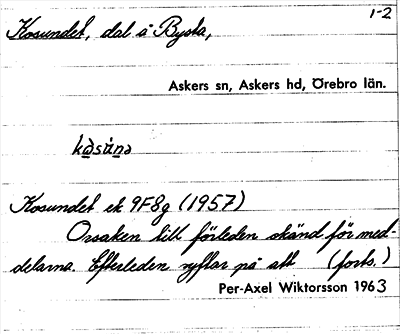 1-2
Kosundet, dal å Bysta,
Askers sn, Askers hd, Örebro län.
kǝsúnǝ
Kosundet ek 9F8g (1957)
Orsaken till förleden okänd för med-
delarna. Efterleden syftar på att (forts.)
Per-Axel Wiktorsson 1963